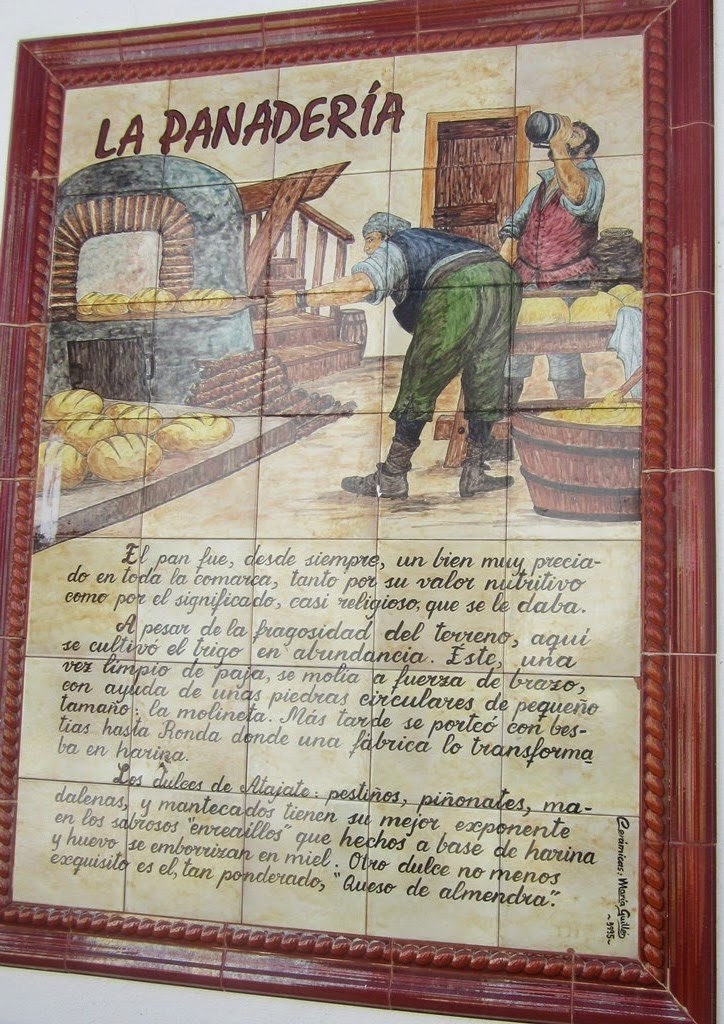 LA PANADERÍA
El pan fue, desde siempre, un bien muy precia-
do en toda la comarca, tanto por su valor nutritivo
como por el significado, casi religioso, que se le daba.
A pesar de la fragosidad del terreno, aquí
se cultivó el trigo en abundancia. Este, una
vez limpio de paja, se molía a fuerza de brazo,
con ayuda de unas piedras circulares de pequeño
tamaño: la molineta. Más tarde se porteó con bes-
tias hasta Ronda donde una fábrica lo transforma
ba en harina.
Los dulces de Atajate: pestiños, piñonates, ma-
dalenas, y mantecados tienen su mejor exponente
en los sabrosos "enreaillos" que hechos a base de harina
y huevo se emborrizan en miel. Otro dulce no menos
exquisito es el, tan ponderado, "Queso de almendra".
Cerámicas: María Guillén
~1995~